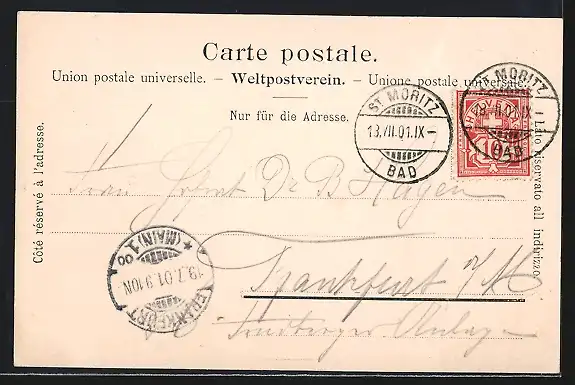 Carte postale.
Union postale universelle. – Weltpostverein. – Unione postale universale
Nur für die Adresse.
Côté réservé à l'adresse.
Lato riservato all indirizzo
ST MORITZ
13.VII.01.IX–
BAD
ST MORITZ
13.VII.01.IX–
BAD
Frau Dr B Hagen
Frankfurt a/M
Anlage
FRANKFURT
(MAIN) 1.